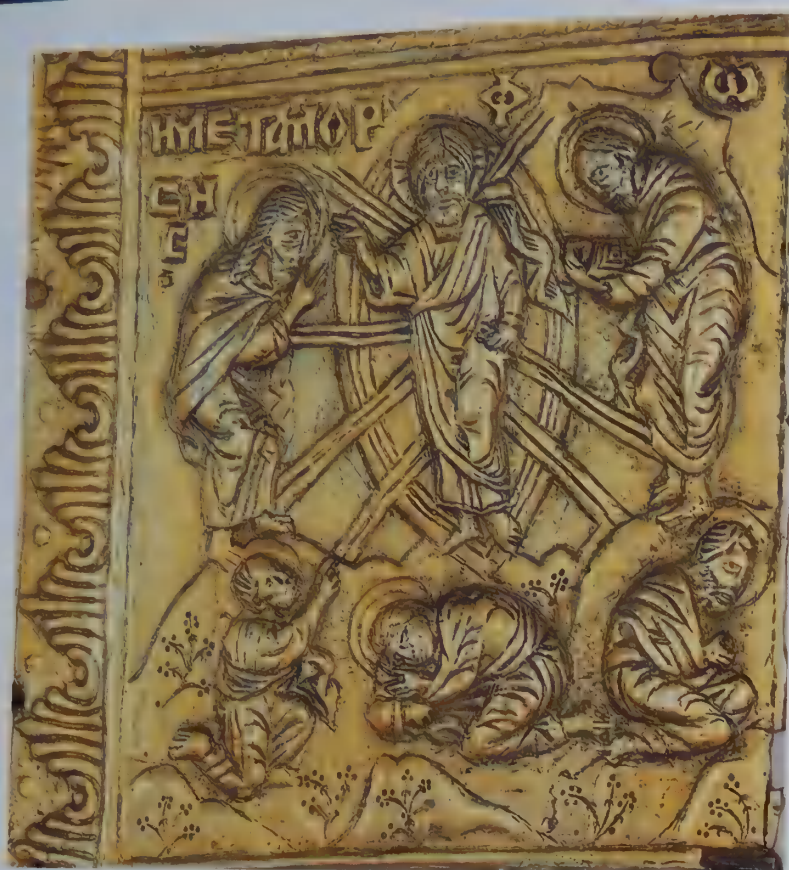 ΗΜΕΤΑΜΟΡ Φ Ω
CΗ
C